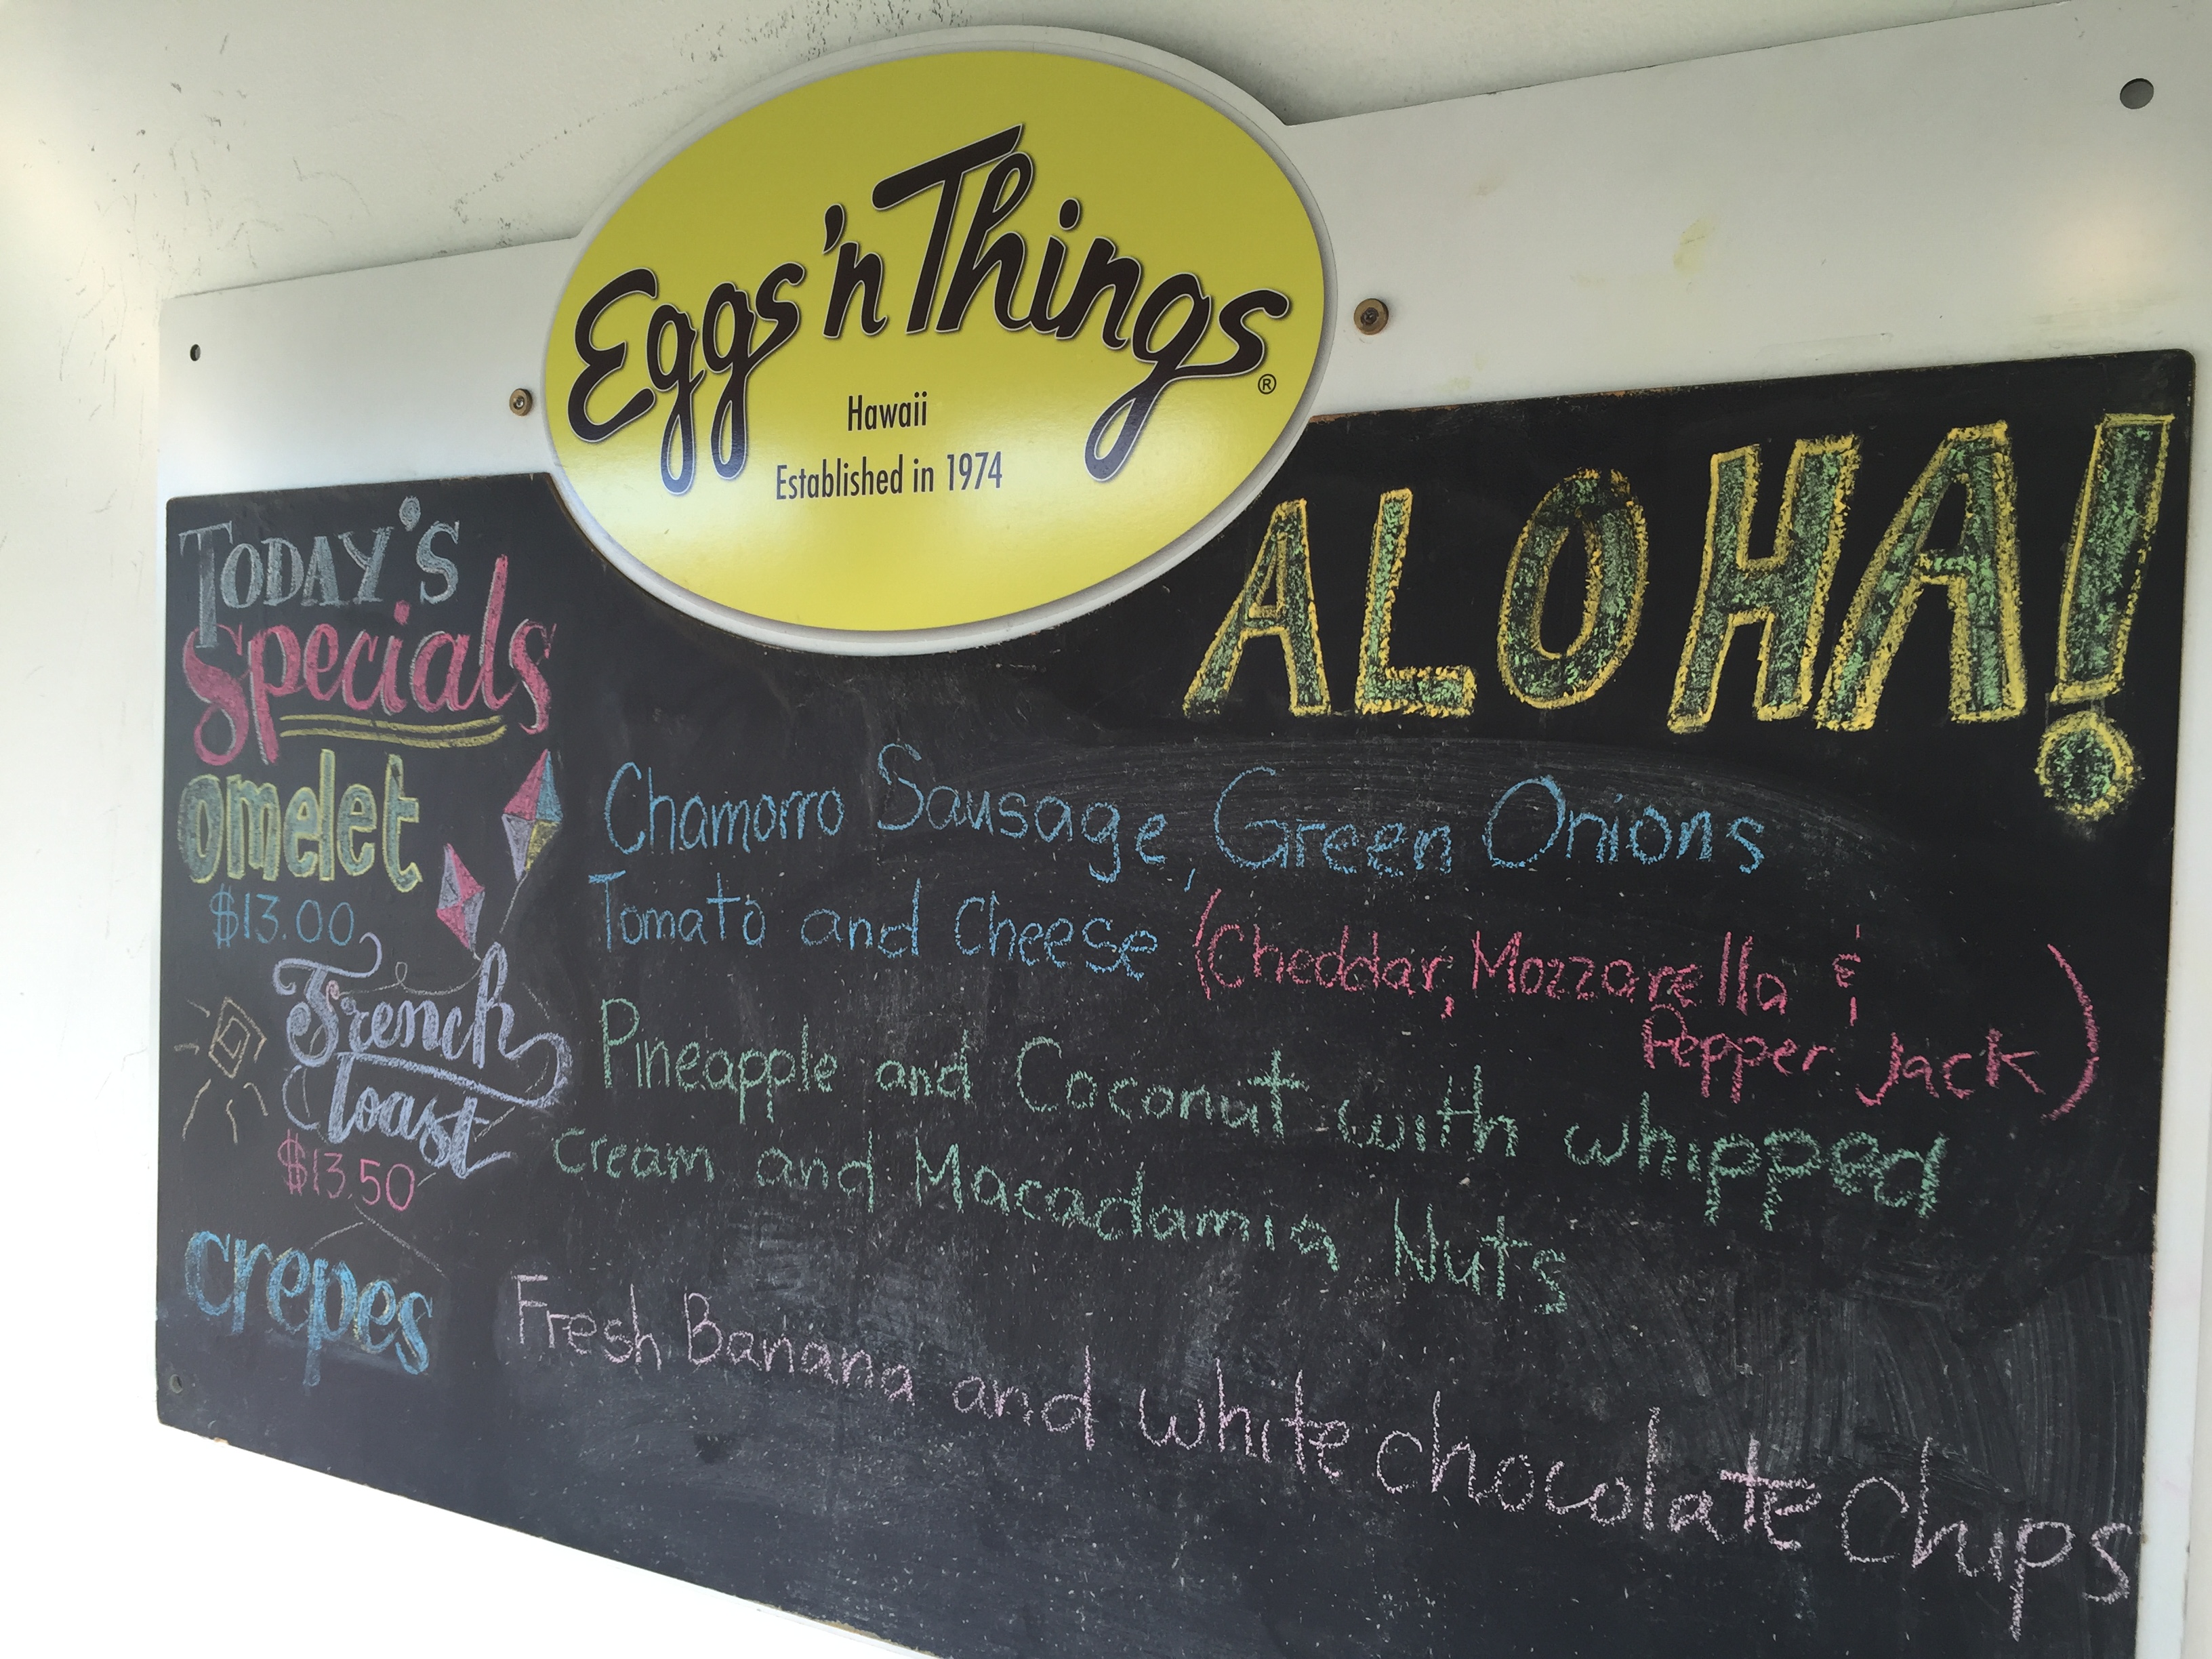 Eggs 'n Things®
Hawaii
Established in 1974
ALOHA!
TODAY'S
Specials
omelet
$13.00
Chamorro Sausage, Green Onions
Tomato and Cheese (Cheddar, Mozzarella &
Pepper Jack)
French
toast
$13.50
Pineapple and Coconut with whipped
cream and Macadamia Nuts
crepes
Fresh Banana and white chocolate Chips